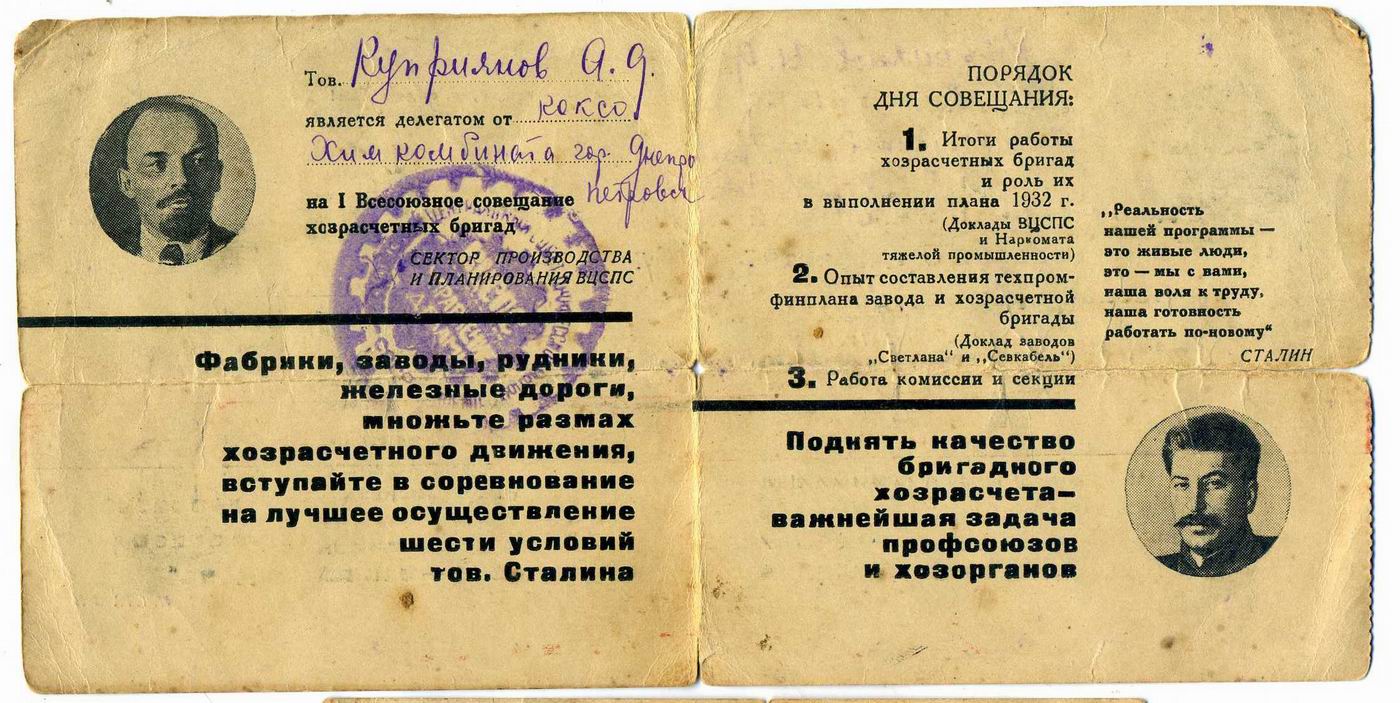 Тов. Куприянов А. Д.
является делегатом от коксо
Хим комбината гор Днепро
петровск
на I Всесоюзное совещание
хозрасчетных бригад
СЕКТОР ПРОИЗВОДСТВА
И ПЛАНИРОВАНИЯ ВЦСПС
Фабрики, заводы, рудники,
железные дороги,
множьте размах
хозрасчетного движения,
вступайте в соревнование
на лучшее осуществление
шести условий
тов. Сталина
ПОРЯДОК
ДНЯ СОВЕЩАНИЯ:
1. Итоги работы
хозрасчетных бригад
и роль их
в выполнении плана 1932 г.
(Доклады ВЦСПС
и Наркомата
тяжелой промышленности)
2. Опыт составления техпром-
финплана завода и хозрасчетной
бригады
(Доклад заводов
„Светлана" и „Севкабель")
3. Работа комиссии и секции
Поднять качество
бригадного
хозрасчета—
важнейшая задача
профсоюзов
и хозорганов
„Реальность
нашей программы —
это живые люди,
это — мы с вами,
наша воля к труду,
наша готовность
работать по-новому"
СТАЛИН